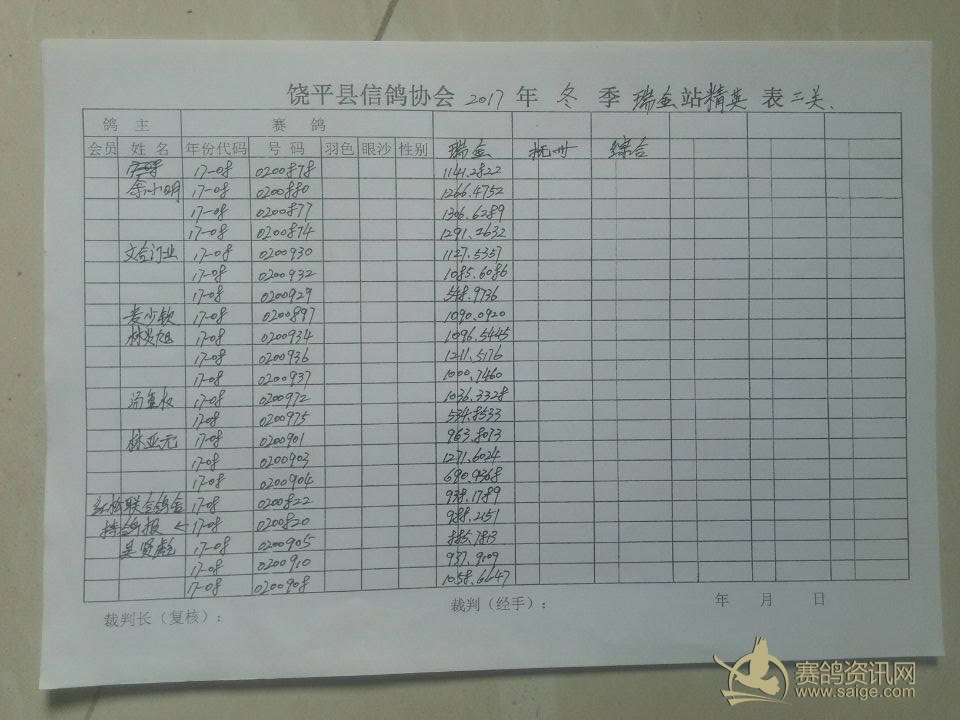 饶平县信鸽协会 2017 年 冬 季 瑞金站精英 表 二关.
鸽 主 赛 鸽
会员 姓 名 年份代码 号 码 羽色 眼沙 性别 瑞金 抚州 综合
17-08 0200878 1141.2822
余小明 17-08 0200880 1266.4752
17-08 0200877 1306.6289
17-08 0200874 1291.2632
文合门业 17-08 0200930 1127.5357
17-08 0200932 1085.6086
17-08 0200929 548.9736
麦少钦 17-08 0200897 1090.0920
17-08 0200934 1096.5445
17-08 0200936 1211.5176
17-08 0200937 1000.7460
17-08 0200972 1036.3328
17-08 0200975 534.8533
林亚元 17-08 0200901 963.8073
17-08 0200903 1271.6024
17-08 0200904 690.9368
联合鸽舍 17-08 0200822 938.1789
17-08 0200820 988.2151
吴贤彪 17-08 0200905
17-08 0200910 937.9109
17-08 0200908 1058.6647
裁判长（复核）： 裁判（经手）： 年 月 日
赛鸽资讯网
www.saige.com